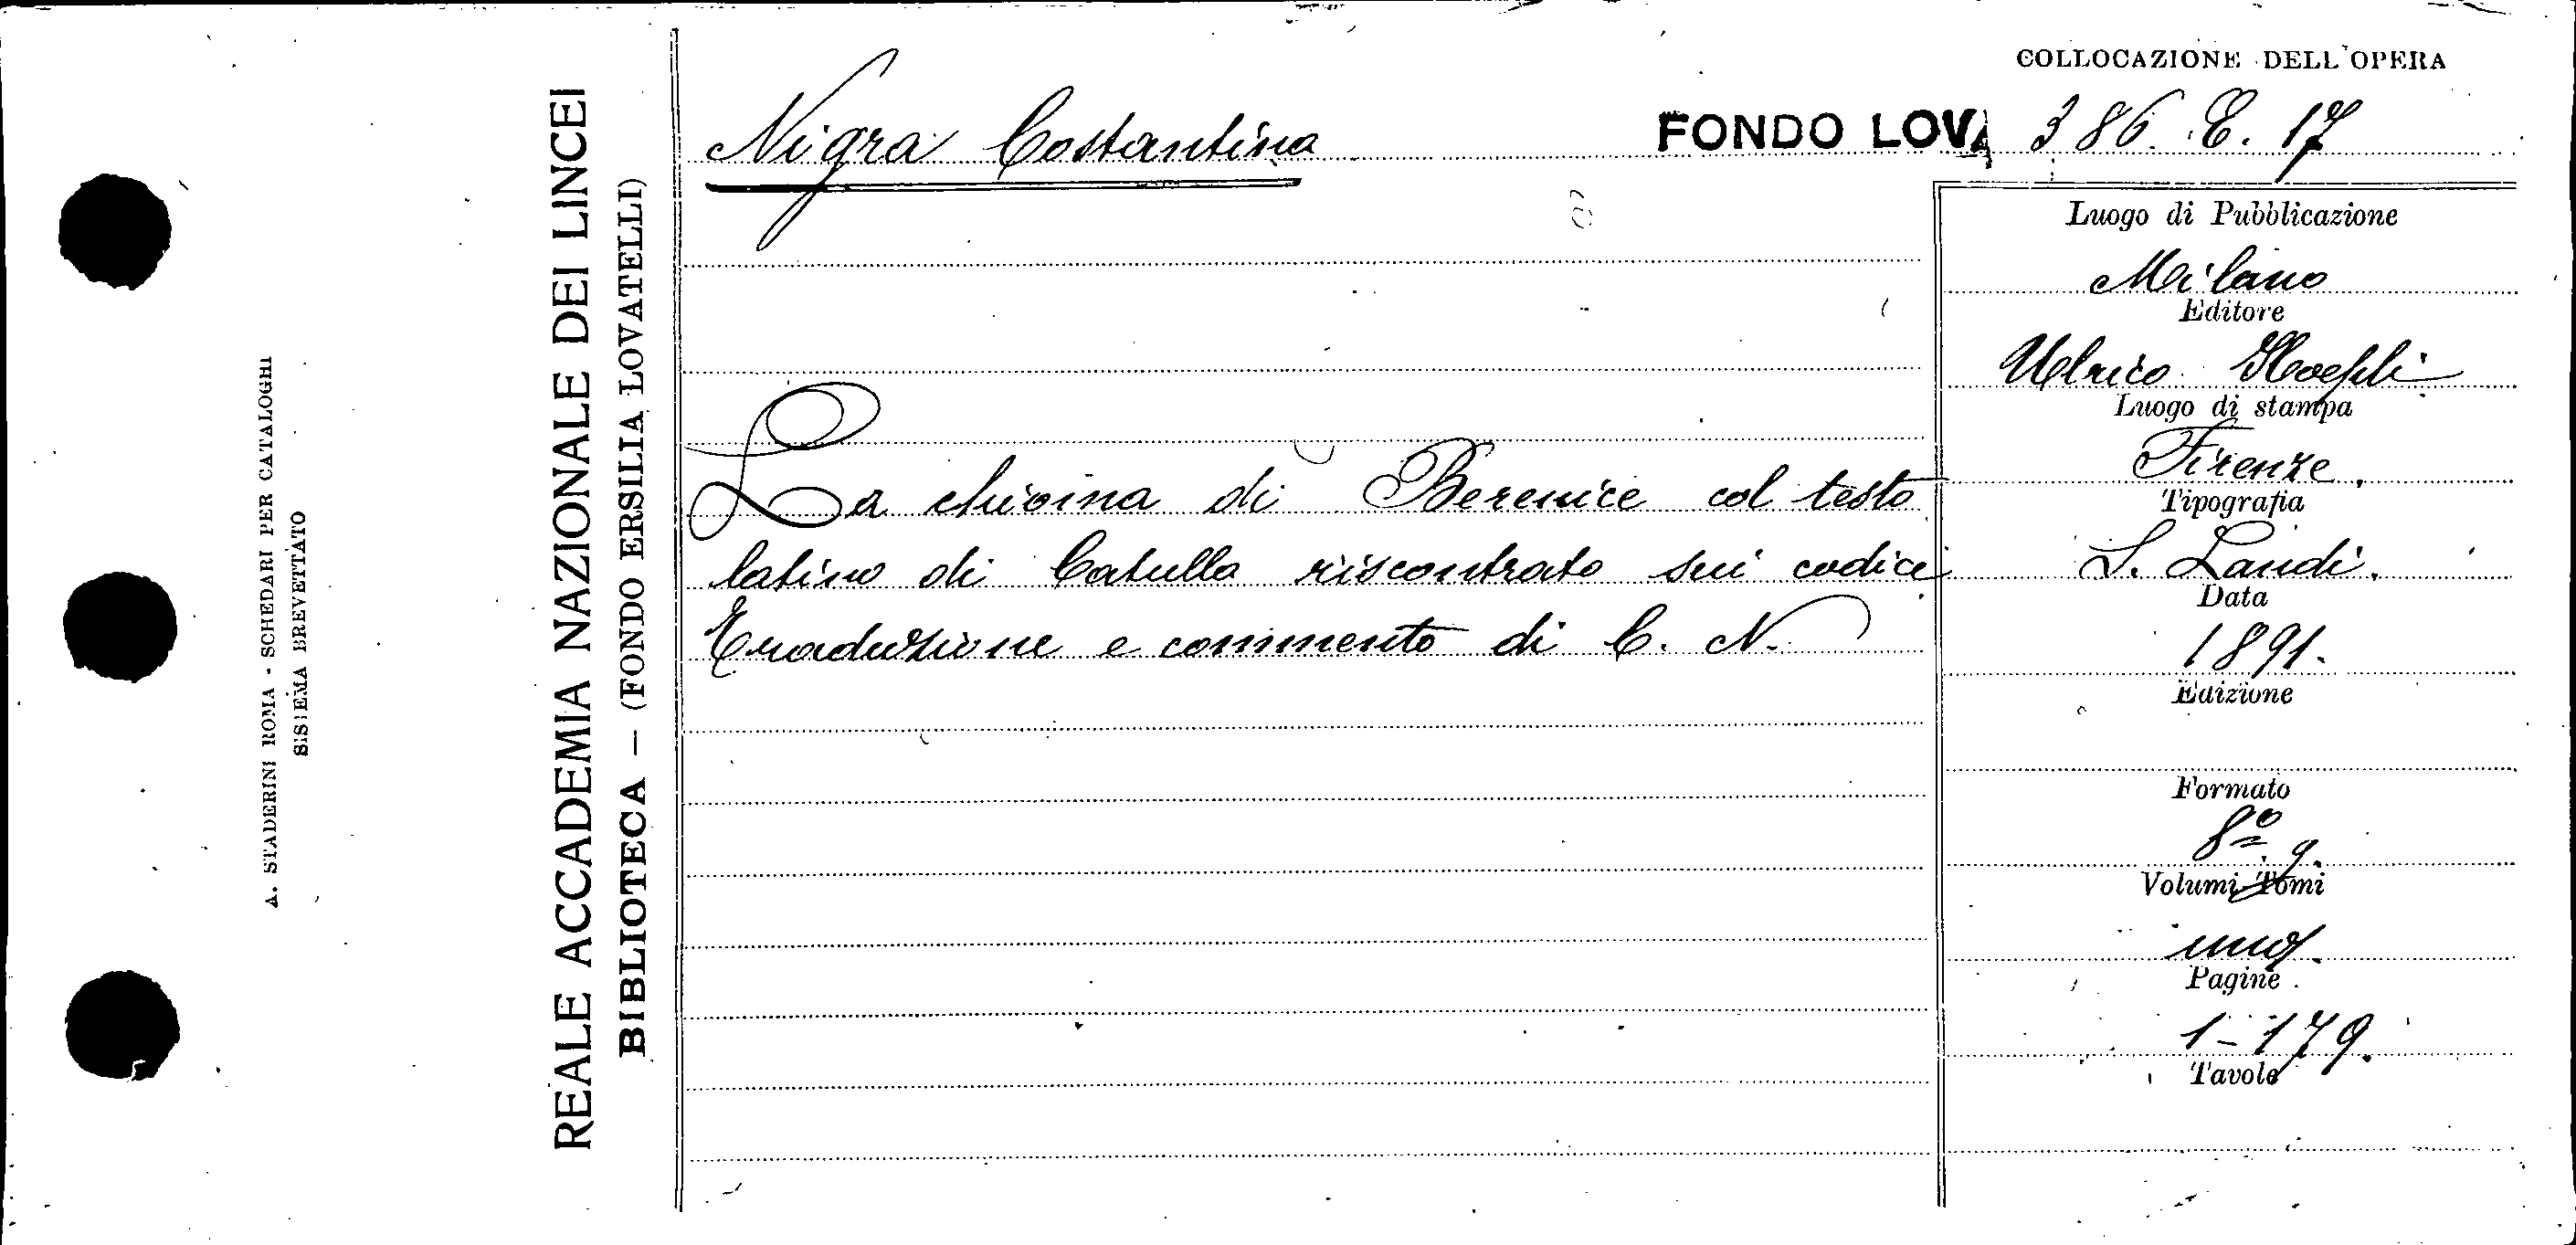 COLLOCAZIONE DELL'OPERA
Nigra Costantino
FONDO LOVA 386. E. 17
La chioma di Berenice col testo
latino di Catullo riscontrato sui codici
Traduzione e commento di C. N.
Luogo di Pubblicazione
Milano
Editore
Ulrico Hoepli
Luogo di stampa
Firenze.
Tipografia
S. Landi.
Data
1891.
Edizione
Formato
8º g.
Volumi-Tomi
uno.
Pagine
1-179.
Tavole
REALE ACCADEMIA NAZIONALE DEI LINCEI
BIBLIOTECA — (FONDO ERSILIA LOVATELLI)
A. STADERINI ROMA - SCHEDARI PER CATALOGHI
SISTEMA BREVETTATO